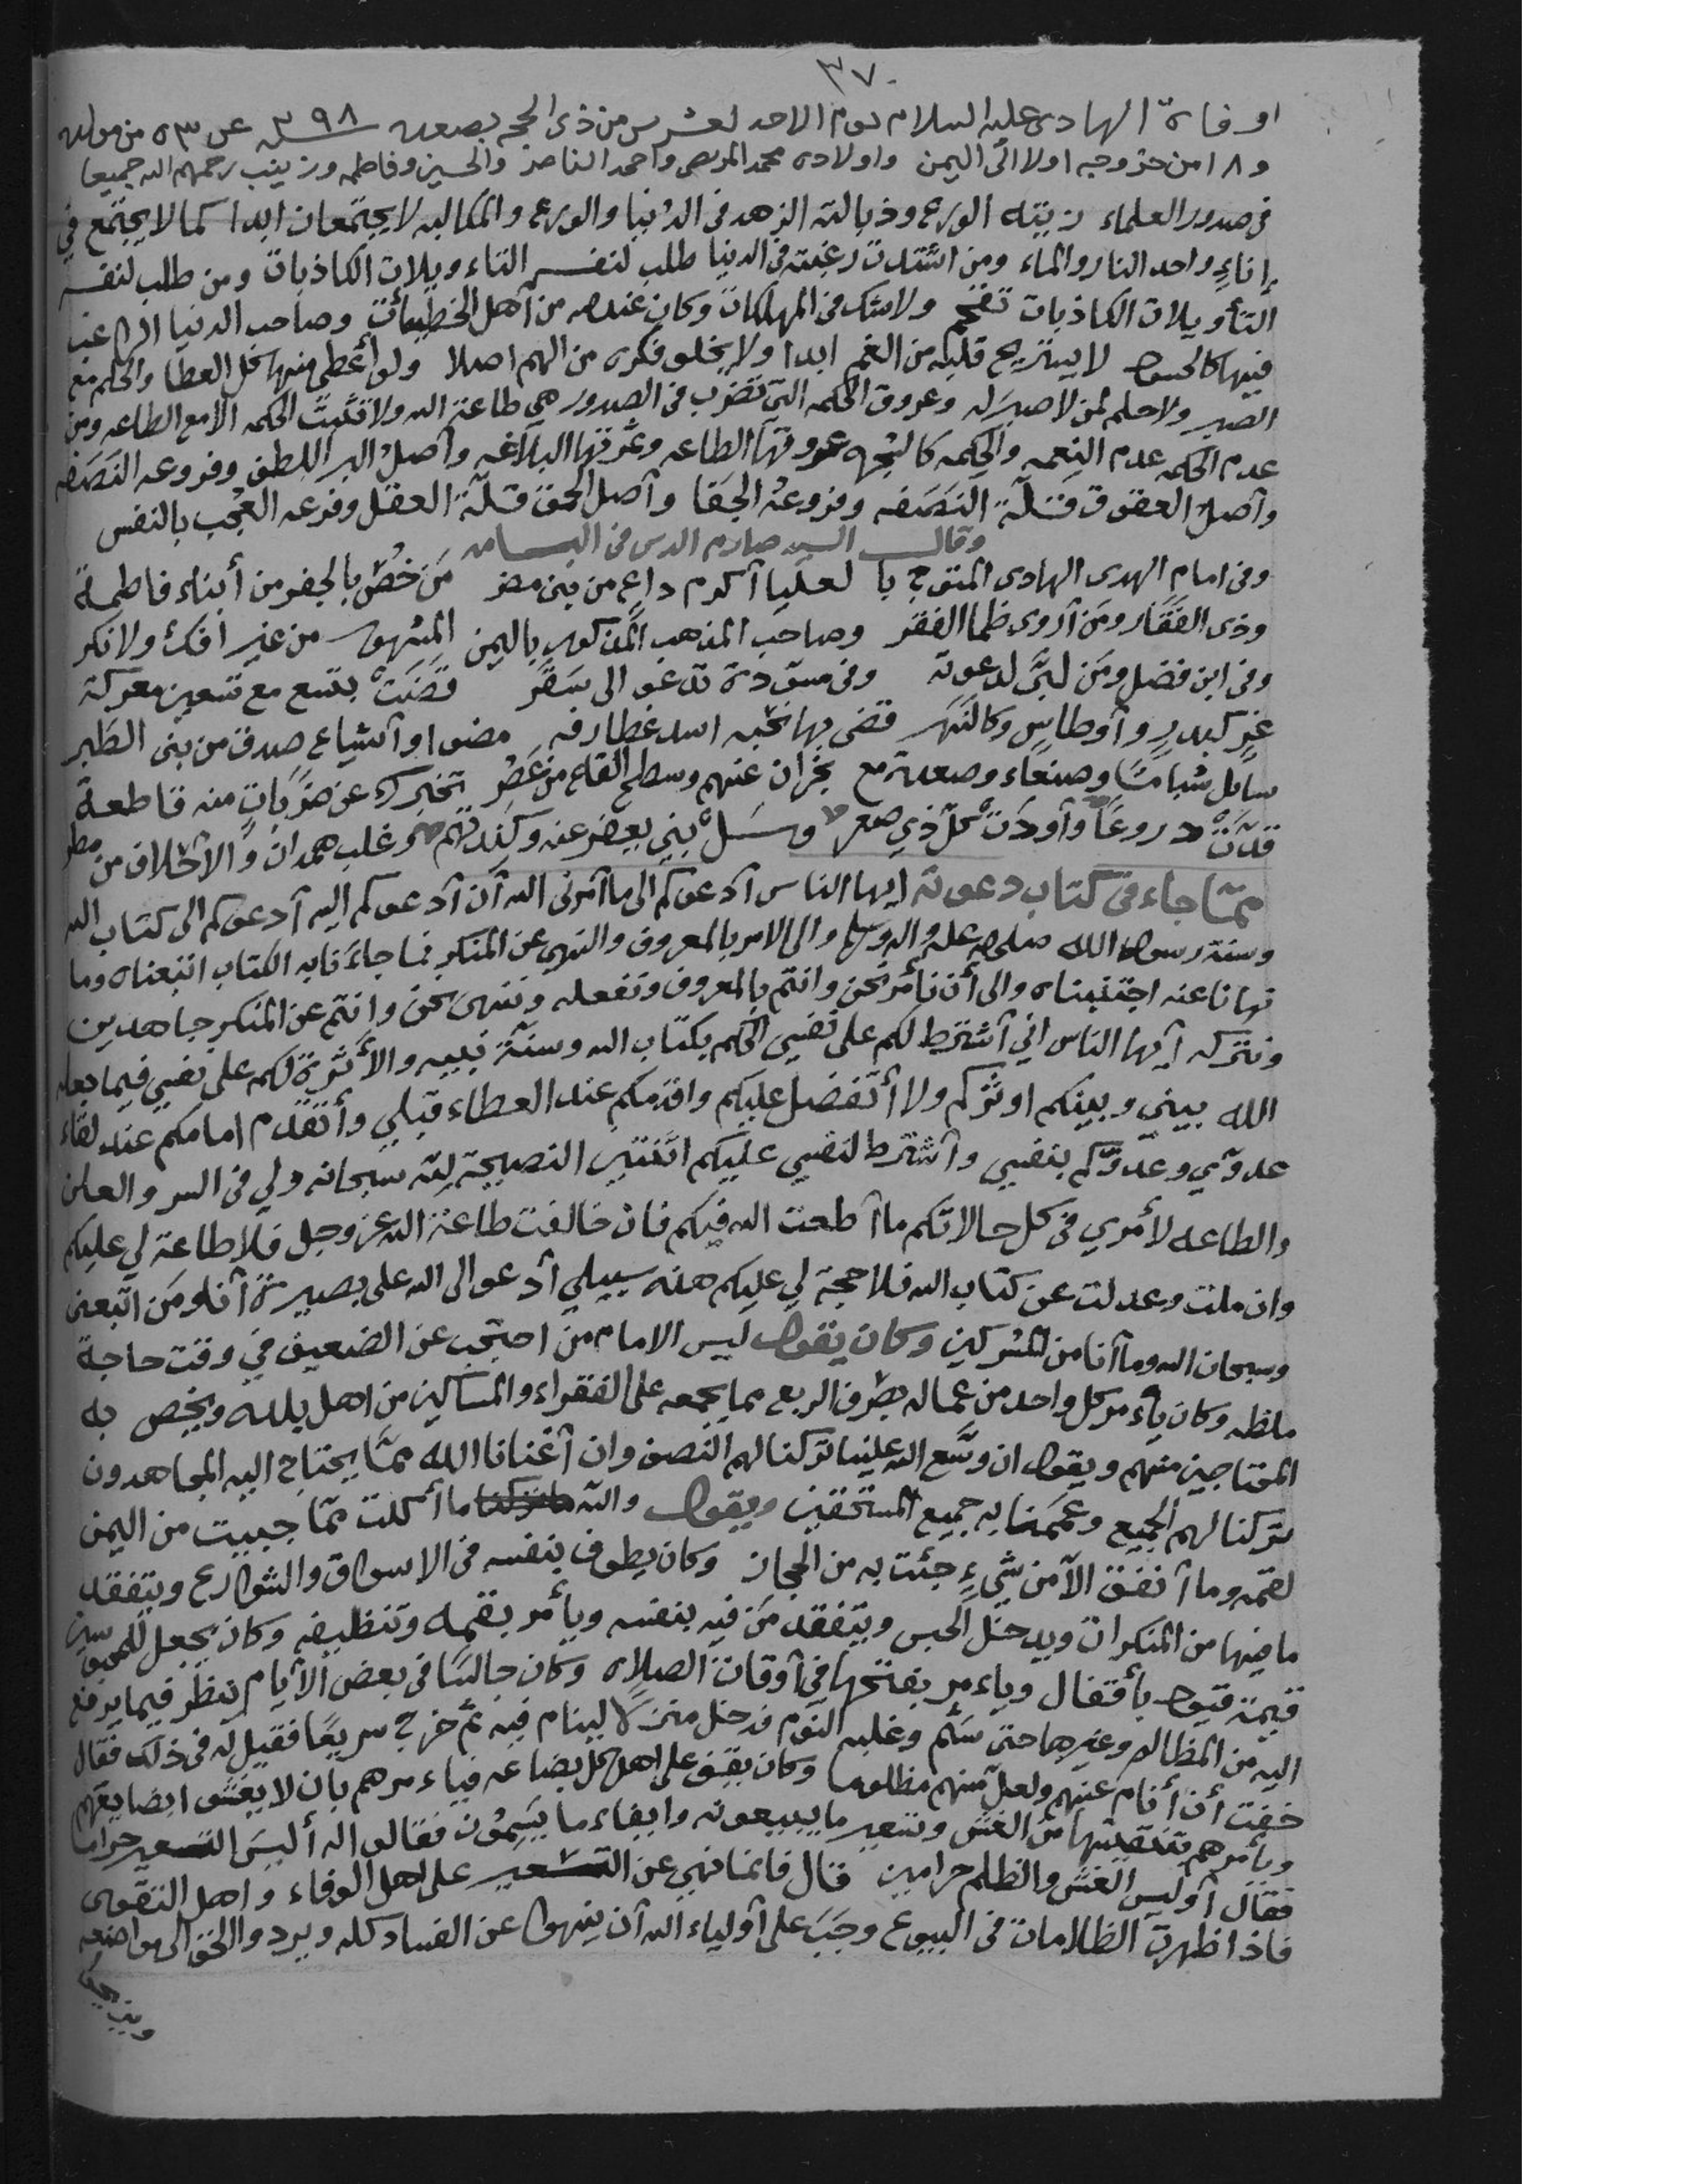 ٣٧٠
او فاة الهادي عليه السلام يوم الاحد لعشر من ذي الحجه بصعده سنة ٢٩٨ عن ٥٣ من مولده
و ١٨ من خروجه اولا الى اليمن واولاده محمد المرتضى واحمد الناصر والحسين وفاطمه وزينب رحمهم الله جميعا
في صدور العلماء زيته الورع وذبالته الزهد في الدنيا والورع والمكالبه لا يجتمعان ابدا كما لا يجتمع في
إناءٍ واحد النار والماء ومن اشتدت رغبته في الدنيا طلب لنفسه التاءويلات الكاذبات ومن طلب لنفسه
التأويلات الكاذبات تقحم ولا شك في المهلكات وكان عند الله من أهل الخطيئات وصاحب الدنيا الراغب
فيها كالحسود لا يستريح قلبه من الغم ابدا ولا يخلو فكره من الهم اصلا ولو أعطي منها كل العطا والحلم مع
الصبر ولا حلم لمن لا صبر له وعروق الحكمه التي تضرب في الصدور هي طاعة الله ولا تثبت الحكمه الا مع الطاعه ومن
عدم الحكمه عدم النعمه والحكمه كالشجره عروقها الطاعه وثمرتها البلاغه وأصل البر اللطف وفروعه النَصَفه
وأصل العقوق قلّة النَصَفه وفروعه الجَفا وأصل الحمق قلّة العقل وفرعه العُجب بالنفس
وقال السيد صارم الدين في البسامه
وفي امام الهدى الهادي المتوج با لعليا أكرم داعٍ من بني مضر مَن خُصّ بالجفر من أبناء فاطمة
وذي الفَقَار ومن أروى ظما الفقر وصاحب المذهب المذكور باليمن المشهور من غير افك ولا نكر
وفي ابن فضل ومَن لبّى لدعوته وفي مسوّدة تدعو الى سَقَر قَضَتْ بتسع مع تسعين معركة
غرٍ كبدرٍ وأوطاسٍ وكالنهر قضى بها نحبه اسد غطارفه مضوا وأشياع صدق من بني الطبر
سايل شباماً وصنعاء وصعدة مع نجران عنهم وسطح القاع من عَصُر تخبرك عن ضرَباتٍ منه قاطعة
قدّت دروعاً وأودَت كلّ ذي صعر وسَل بني يعفر عنه وكندتهم وغلب همدان والأحلاف من مطر
ممّا جاء في كتاب دعوته ايها الناس أدعوكم الى ما أمرني الله أن أدعوكم اليه أدعوكم الى كتاب الله
وسنة رسول الله صلى الله عليه واله وسلم والى الامر بالمعروف والنهي عن المنكر فما جاءنا به الكتاب اتبعناه وما
نهانا عنه اجتنبناه والى أن نأمر نحن وانتم بالمعروف ونفعله وننهى نحن وانتم عن المنكر جاهدين
ونتركه أيها الناس اني أشترط لكم على نفسي الحكم بكتاب الله وسنّة نبيه والأثرة لكم على نفسي فيما جعله
الله بيني وبينكم اوثركم ولا أتفضل عليكم واقدمكم عند العطاء قبلي وأتقدم امامكم عند لقاء
عدوّي وعدوّكم بنفسي وأشترط لنفسي عليكم اثنتين النصيحة لله سبحانه ولي في السر والعلن
والطاعه لأمري في كل حالاتكم ما أطعت الله فيكم فان خالفت طاعة الله عز وجل فلا طاعة لي عليكم
وان ملت وعدلت عن كتاب الله فلا حجة لي عليكم هذه سبيلي أدعو الى الله على بصيرة أنا ومَن اتبعني
وسبحان الله وما أنا من المشركين وكان يقول ليس الامام من احتجب عن الضعيف في وقت حاجة
ملظه وكان يأءمر كل واحد من عماله بصرف الربع مما يجمعه على الفقراء والمساكين من اهل بلده ويخص به
المحتاجين منهم ويقول ان وسّع الله علينا تركنا لهم النصف وان أغنانا الله ممّا يحتاج اليه المجاهدون
تركنا لهم الجميع وعممنا به جميع المستحقين ويقول والله ما أكلت ممّا جبيت من اليمن
لقمه وما أنفق الّا من شيءٍ جئت به من الحجاز وكان يطوف بنفسه في الاسواق والشوارع ويتفقد
ما فيها من المنكرات ويدخل الحبس ويتفقد مَن فيه بنفسه ويأمر بقمه وتنظيفه وكان يجعل للمحبوسين
قيمة قيود بأقفال وياءمر بفتحها في أوقات الصلاه وكان جالسًا في بعض الأيام ينظر فيما يرفع
اليه من المظالم وغيرها حتى سئم وغلبه النوم فدخل منزلًا لينام فيه ثم خرج سريعًا فقيل له في ذلك فقال
خفت أن أنام عنهم ولعل منهم مظلوما وكان يقف على اهل كل بضاعه فياءمرهم بأن لا يغشوا بضايعهم
ويأمرهم بتنقيتها من الغش وتسعير ما يبيعونه وايفاء ما يَسِمُون فقالوا له أليسَ التسعير حراما
فقال أوليس الغش والظلم حرامين قال فانما نهي عن التسعير على اهل الوفاء واهل التقوى
فاذا ظهرت الظلامات في البيوع وجَبَ على أولياء الله أن ينهوا عن الفساد كله ويردوا الحق الى مواضعه